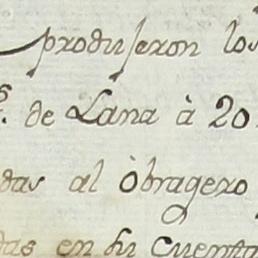 produjeron los
s. de Lana à 20
das al òbragero
das en su cuenta